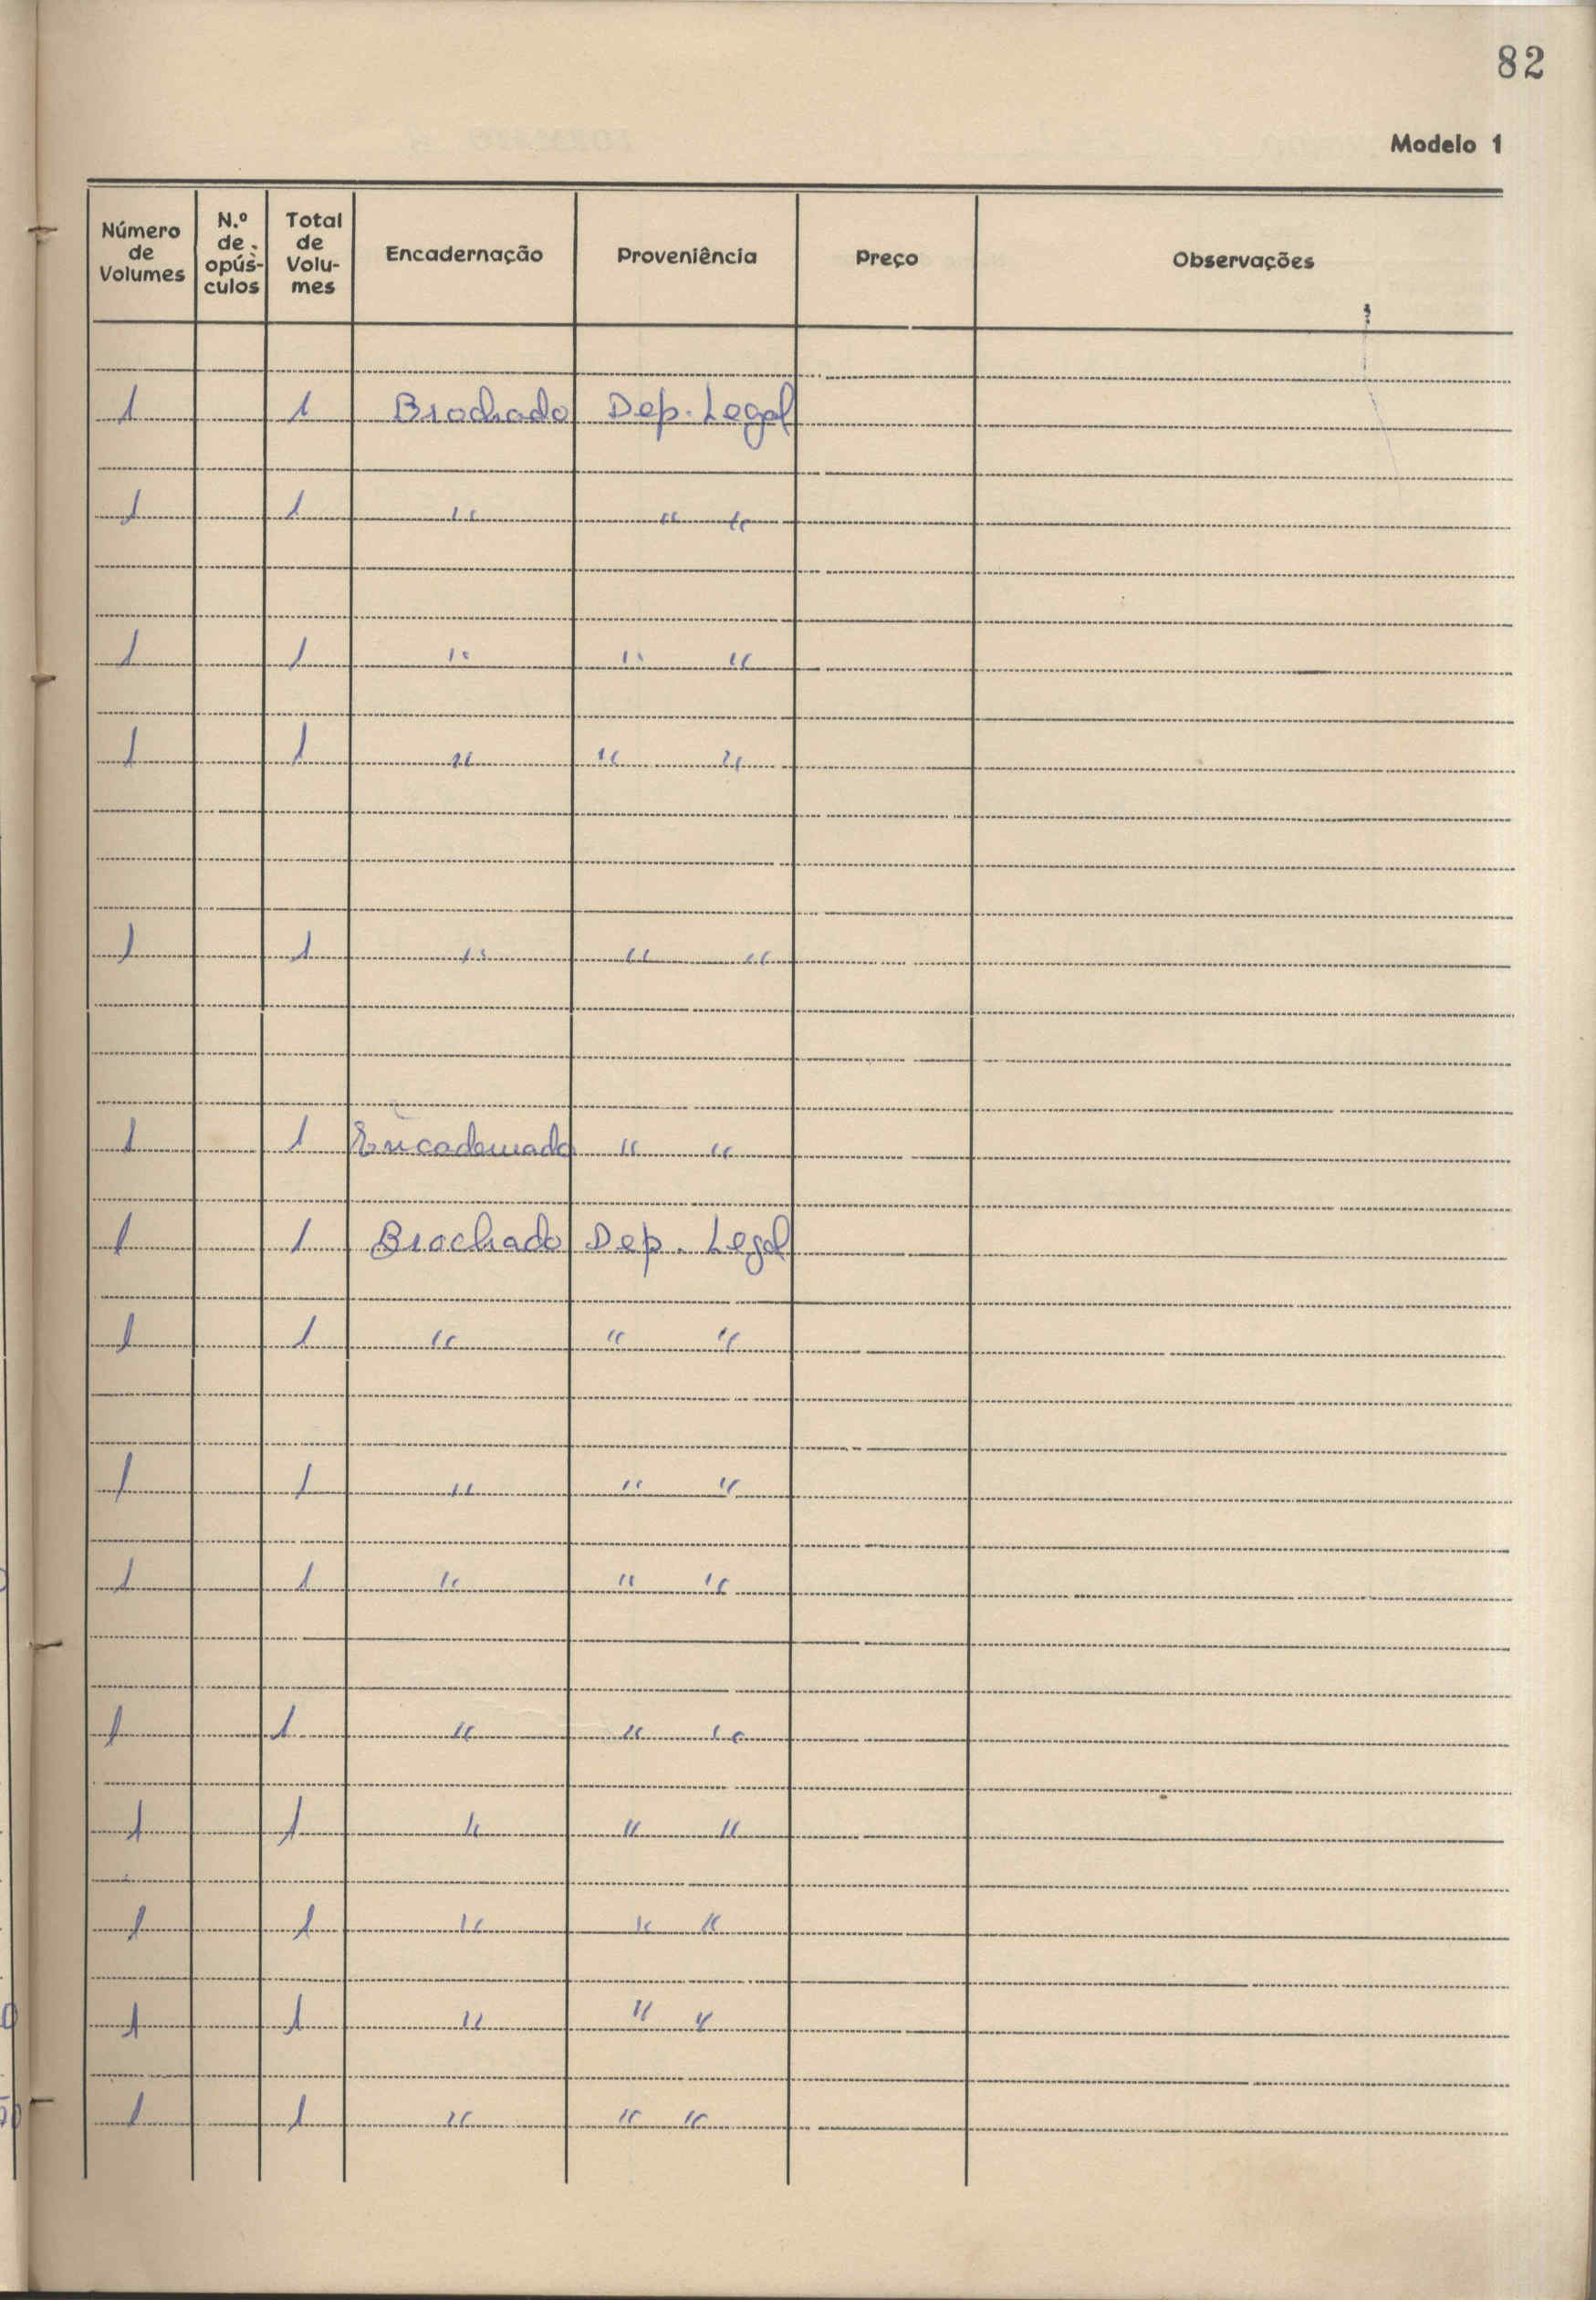 82
Modelo 1
Número de Volumes N.º de opús-culos Total de Volu-mes Encadernação Proveniência Preço Observações
1 1 Brochado Dep. Legal
1 1 " " "
1 1 " " "
1 1 " " "
1 1 " " "
1 1 Encadernado " "
1 1 Brochado Dep. Legal
1 1 " " "
1 1 " " "
1 1 " " "
1 1 " " "
1 1 " " "
1 1 " " "
1 1 " " "
1 1 " " "